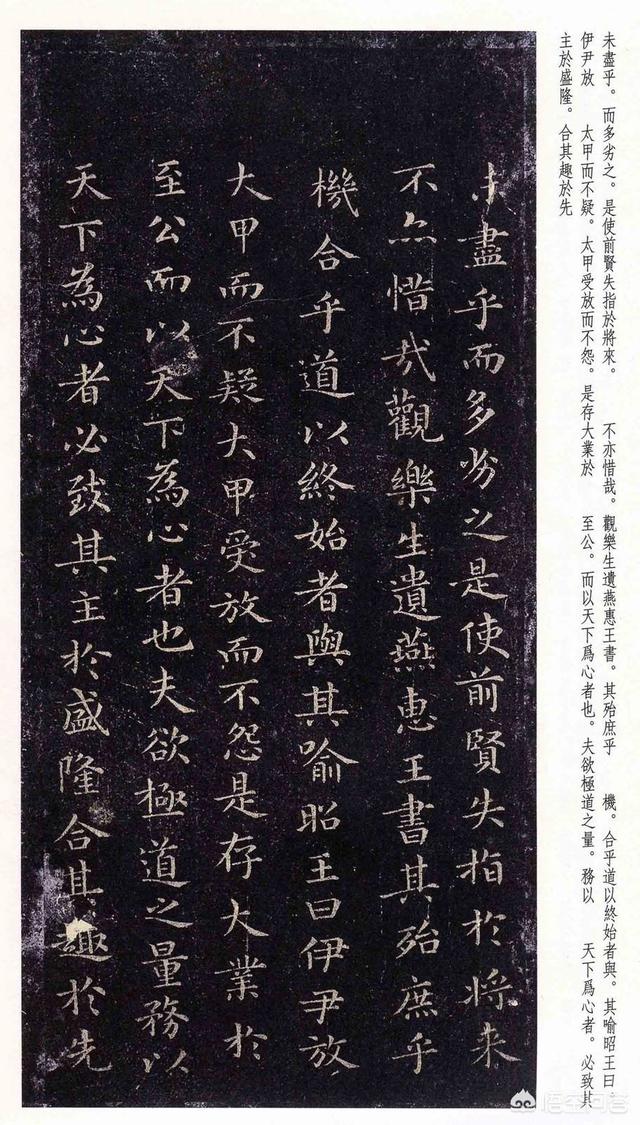 未盡乎。而多劣之。是使前賢失指於將來。 不亦惜哉。觀樂生遺燕惠王書。其殆庶乎 機。合乎道以終始者與。其喻昭王曰。
伊尹放 太甲而不疑。太甲受放而不怨。是存大業於 至公。而以天下爲心者也。夫欲極道之量。務以 天下爲心者。必致其
主於盛隆。合其趣於先
未盡乎而多劣之是使前賢失指於将来
不亦惜哉觀樂生遺燕惠王書其殆庶乎
機合乎道以終始者與其喻昭王曰伊尹放
大甲而不疑大甲受放而不怨是存大業於
至公而以天下為心者也夫欲極道之量務以
天下為心者必致其主於盛隆合其趣於先
悟空问答